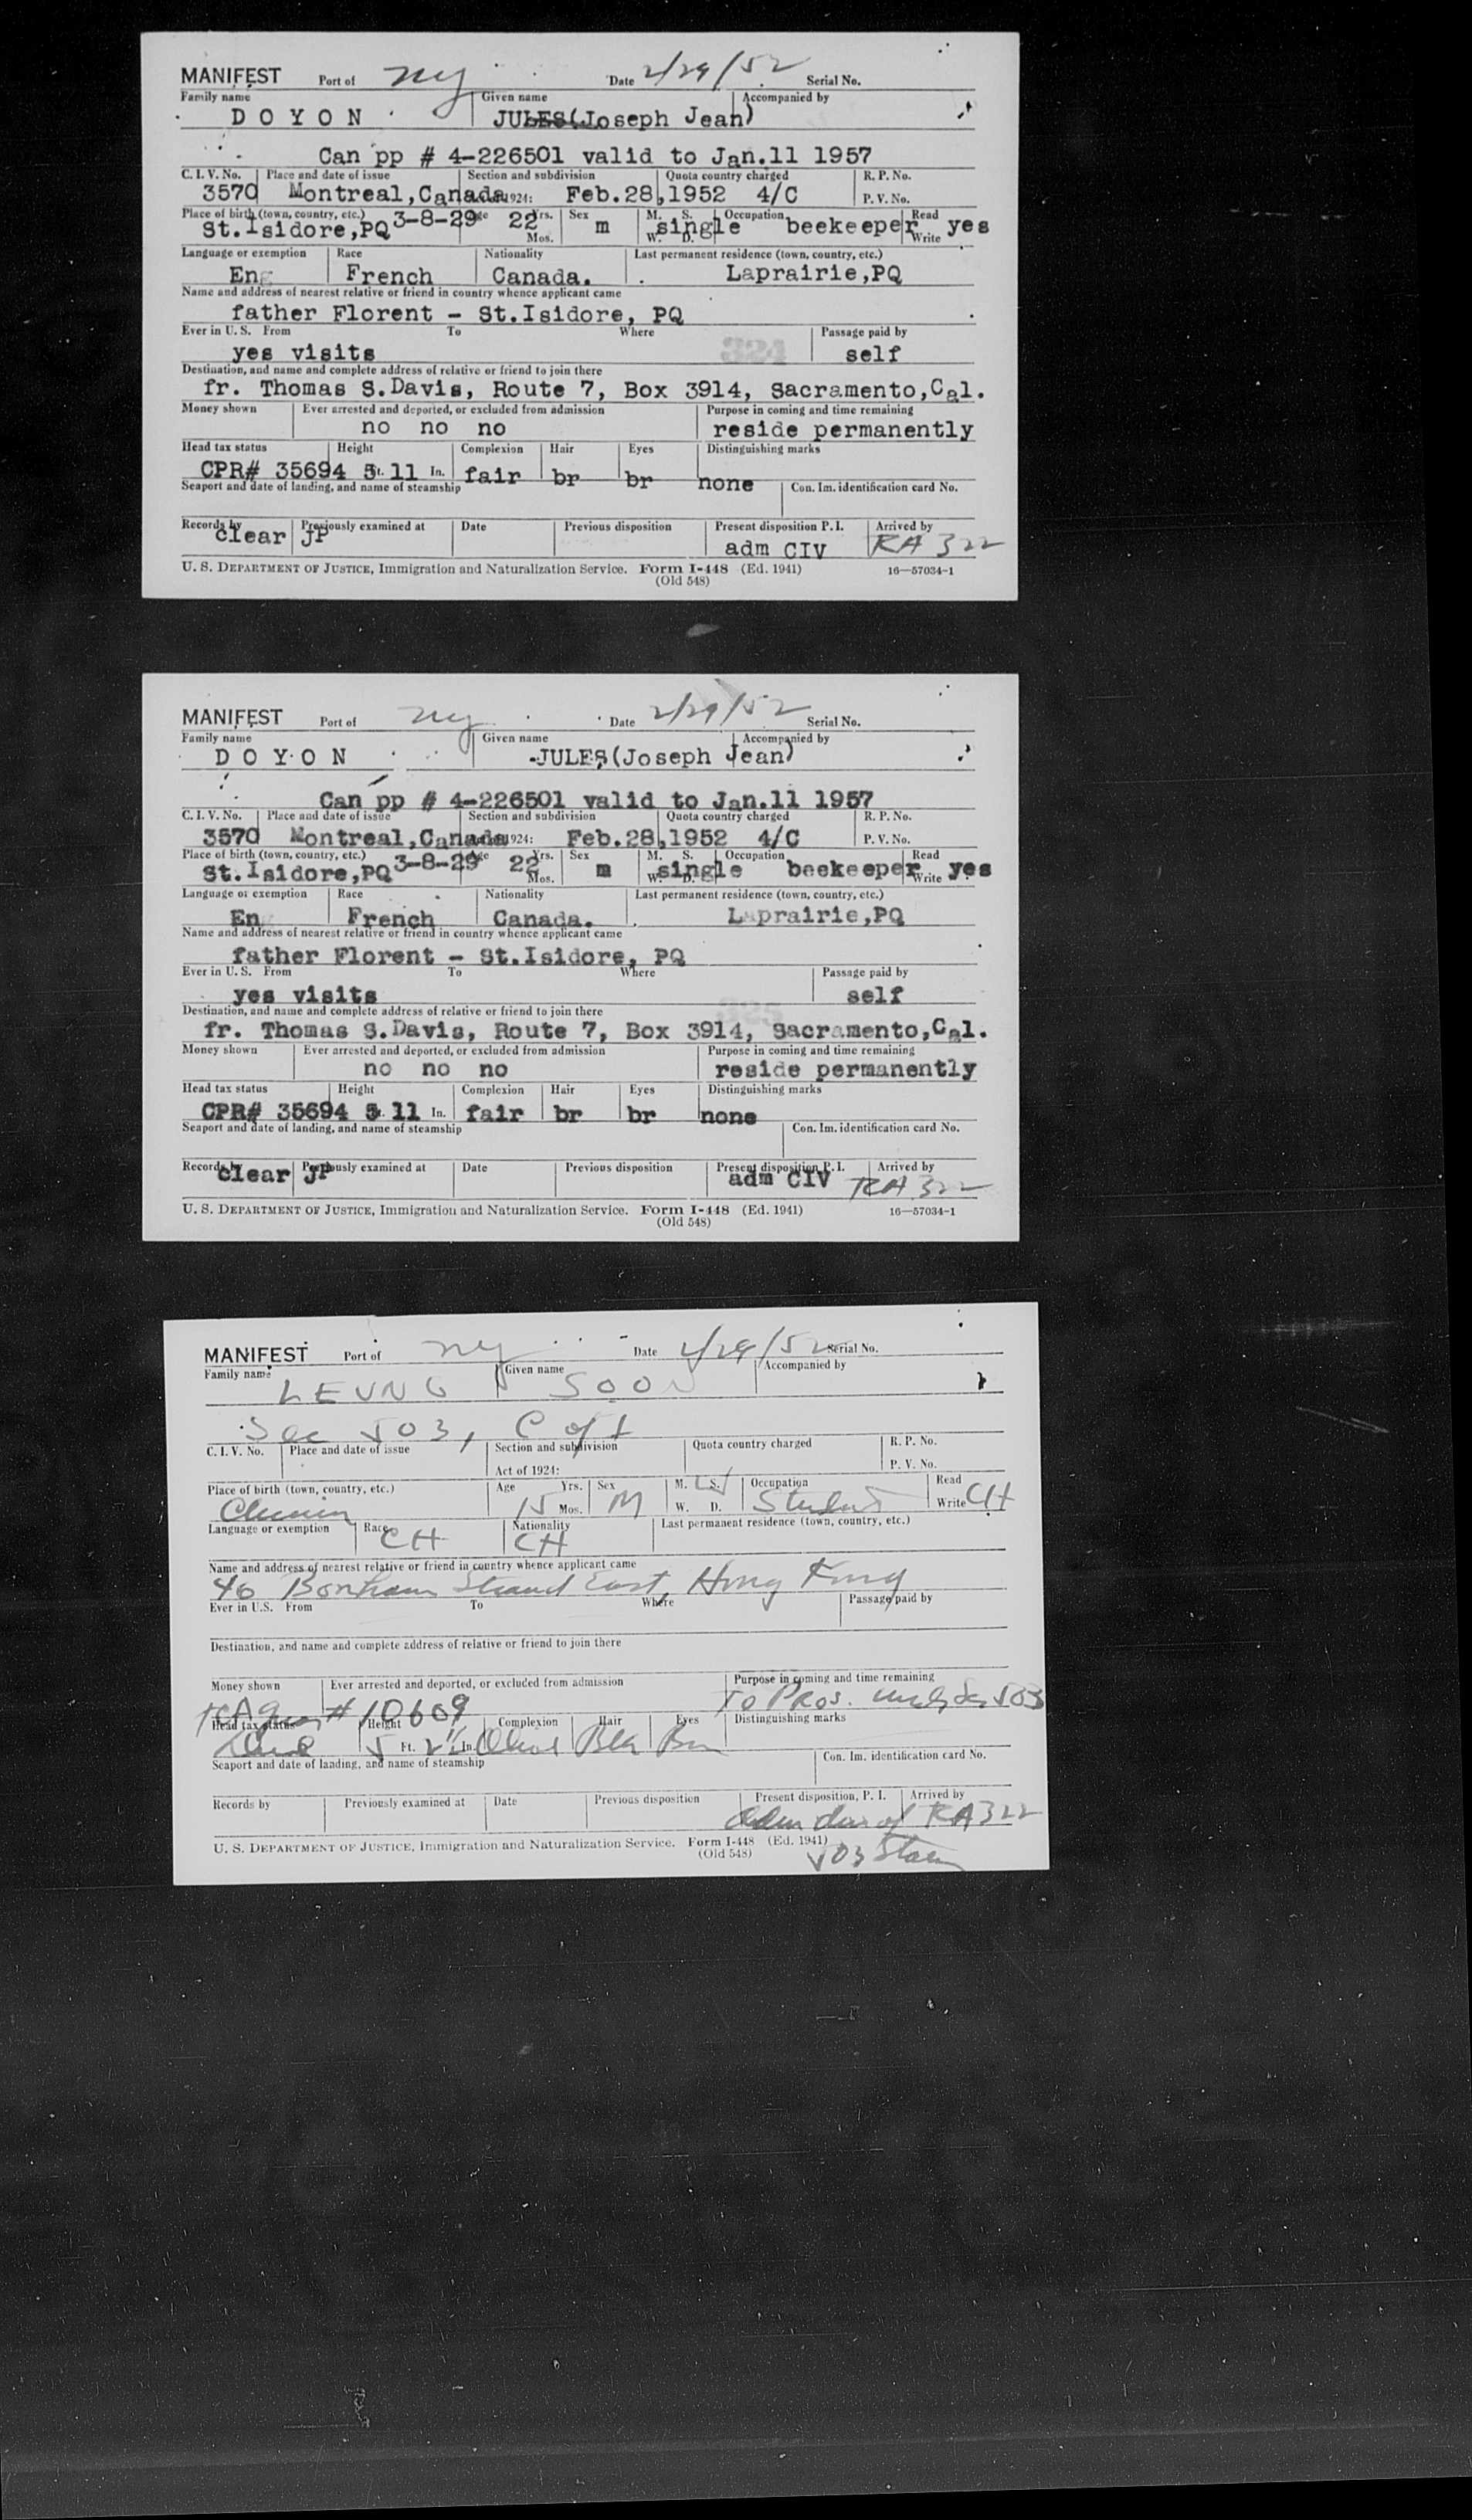 MANIFEST Port of ny Date 2/29/52 Serial No.
Family name Given name Accompanied by
D O Y O N JULES(Joseph Jean)
Can pp # 4-226501 valid to Jan.11 1957
C. I. V. No. Place and date of issue Section and subdivision Quota country charged R. P. No.
3570 Montreal,Canada 1924: Feb.28,1952 4/C P. V. No.
Place of birth (town, country, etc.) Age Yrs. Sex M. S. Occupation Read
St.Isidore,PQ 3-8-29 22 Mos. m W. D. single beekeeper Write yes
Language or exemption Race Nationality Last permanent residence (town, country, etc.)
Eng French Canada. Laprairie,PQ
Name and address of nearest relative or friend in country whence applicant came
father Florent - St.Isidore, PQ
Ever in U. S. From To Where Passage paid by
yes visits 324 self
Destination, and name and complete address of relative or friend to join there
fr. Thomas S.Davis, Route 7, Box 3914, Sacramento,Cal.
Money shown Ever arrested and deported, or excluded from admission Purpose in coming and time remaining
no no no reside permanently
Head tax status Height Complexion Hair Eyes Distinguishing marks
CPR# 35694 5 Ft. 11 In. fair br br none
Seaport and date of landing, and name of steamship Con. Im. identification card No.
Records by Previously examined at Date Previous disposition Present disposition P. I. Arrived by
clear JP adm CIV KA 322
U. S. DEPARTMENT OF JUSTICE, Immigration and Naturalization Service. Form I-448 (Ed. 1941) 16—57034-1
(Old 548)
MANIFEST Port of ny Date 2/29/52 Serial No.
Family name Given name Accompanied by
D O Y O N JULES(Joseph Jean)
Can pp # 4-226501 valid to Jan.11 1957
C. I. V. No. Place and date of issue Section and subdivision Quota country charged R. P. No.
3570 Montreal,Canada 1924: Feb.28,1952 4/C P. V. No.
Place of birth (town, country, etc.) Age Yrs. Sex M. S. Occupation Read
St.Isidore,PQ 3-8-29 22 Mos. m W. D. single beekeeper Write yes
Language or exemption Race Nationality Last permanent residence (town, country, etc.)
En French Canada. Laprairie,PQ
Name and address of nearest relative or friend in country whence applicant came
father Florent - St.Isidore, PQ
Ever in U. S. From To Where Passage paid by
yes visits 325 self
Destination, and name and complete address of relative or friend to join there
fr. Thomas S.Davis, Route 7, Box 3914, Sacramento,Cal.
Money shown Ever arrested and deported, or excluded from admission Purpose in coming and time remaining
no no no reside permanently
Head tax status Height Complexion Hair Eyes Distinguishing marks
CPR# 35694 5 Ft. 11 In. fair br br none
Seaport and date of landing, and name of steamship Con. Im. identification card No.
Records by Previously examined at Date Previous disposition Present disposition P. I. Arrived by
clear JP adm CIV KA 322
U. S. DEPARTMENT OF JUSTICE, Immigration and Naturalization Service. Form I-448 (Ed. 1941) 16—57034-1
(Old 548)
MANIFEST Port of ny Date 2/29/52 Serial No.
Family name Given name Accompanied by
LEUNG SOON
Sec 503, C of I
C. I. V. No. Place and date of issue Section and subdivision Quota country charged R. P. No.
Act of 1924: P. V. No.
Place of birth (town, country, etc.) Age Yrs. Sex M. S. Occupation Read
15 Mos. M W. D. Student Write CH
Language or exemption Race Nationality Last permanent residence (town, country, etc.)
CH CH
Name and address of nearest relative or friend in country whence applicant came
46 Bonham Strand East, Hong Kong
Ever in U.S. From To Where Passage paid by
Destination, and name and complete address of relative or friend to join there
Money shown Ever arrested and deported, or excluded from admission Purpose in coming and time remaining
# 10609 To Pros. under Sec 503
Head tax status Height Complexion Hair Eyes Distinguishing marks
5 Ft. 2½ In. Olive Blk Brn
Seaport and date of landing, and name of steamship Con. Im. identification card No.
Records by Previously examined at Date Previous disposition Present disposition, P. I. Arrived by
KA322
U. S. DEPARTMENT OF JUSTICE, Immigration and Naturalization Service. Form I-448 (Ed. 1941)
(Old 548) 503